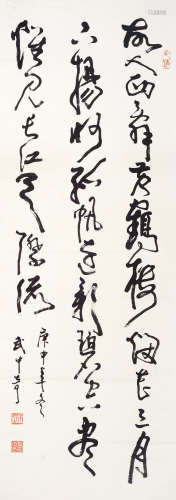 故人西辭黃鶴樓煙花三月
下揚州孤帆遠影碧空盡
惟見長江天際流
庚申年冬
武中奇